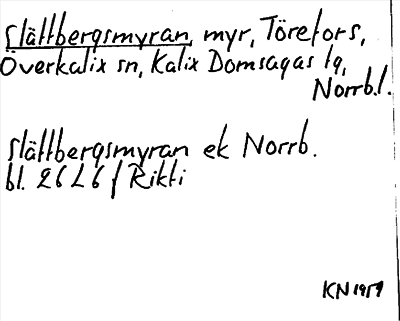 Slättbergsmyran, myr, Törefors,
Överkalix sn, Kalix Domsagas tg,
Norrb.l.
Slättbergsmyran ek Norrb.
bl. 26 L6 f Rikti
KN 1959